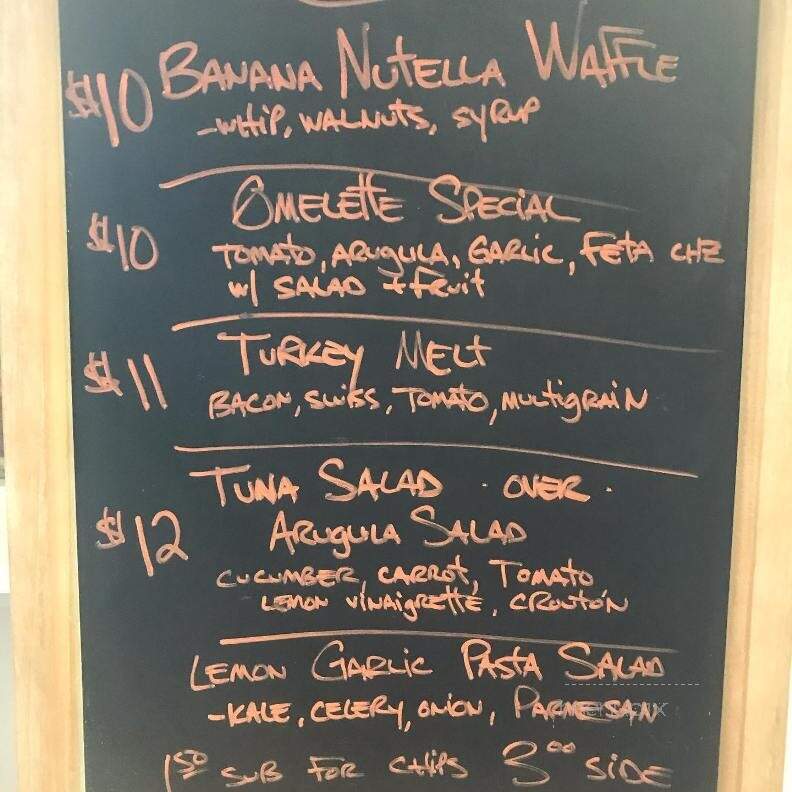 $10 BANANA NUTELLA WAFFLE
-WHIP, WALNUTS, SYRUP
OMELETTE SPECIAL
$10 TOMATO, ARUGULA, GARLIC, FETA CHZ
W/ SALAD + FRUIT
TURKEY MELT
$11 BACON, SWISS, TOMATO, MULTIGRAIN
TUNA SALAD · OVER ·
$12 ARUGULA SALAD
CUCUMBER, CARROT, TOMATO
LEMON VINAIGRETTE, CROUTON
LEMON GARLIC PASTA SALAD
-KALE, CELERY, ONION, PARMESAN
1.50 SUB FOR CHIPS 3.00 SIDE